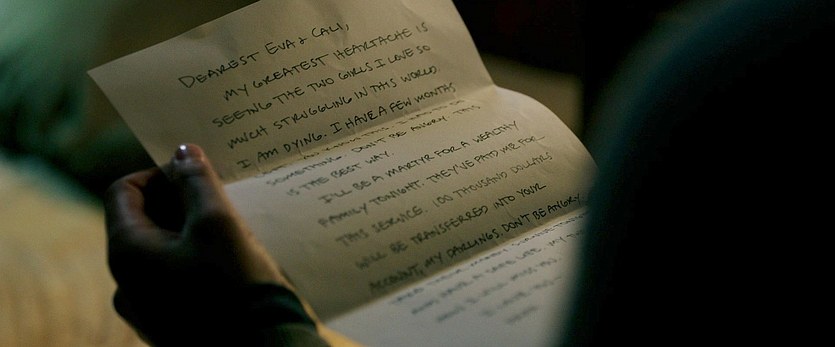 DEAREST EVA & CALI,
MY GREATEST HEARTACHE IS
SEEING THE TWO GIRLS I LOVE SO
MUCH STRUGGLING IN THIS WORLD.
I AM DYING. I HAVE A FEW MONTHS
SOMETHING. DON'T BE ANGRY. THIS
IS THE BEST WAY.
I'LL BE A MARTYR FOR A WEALTHY
FAMILY TONIGHT. THEY'VE PAID ME FOR
THIS SERVICE. 100 THOUSAND DOLLARS
WILL BE TRANSFERRED INTO YOUR
ACCOUNT, MY DARLINGS. DON'T BE ANGRY.
AND HAVE A SAFE LIFE. MY
I WILL MISS YOU.
I LOVE YOU